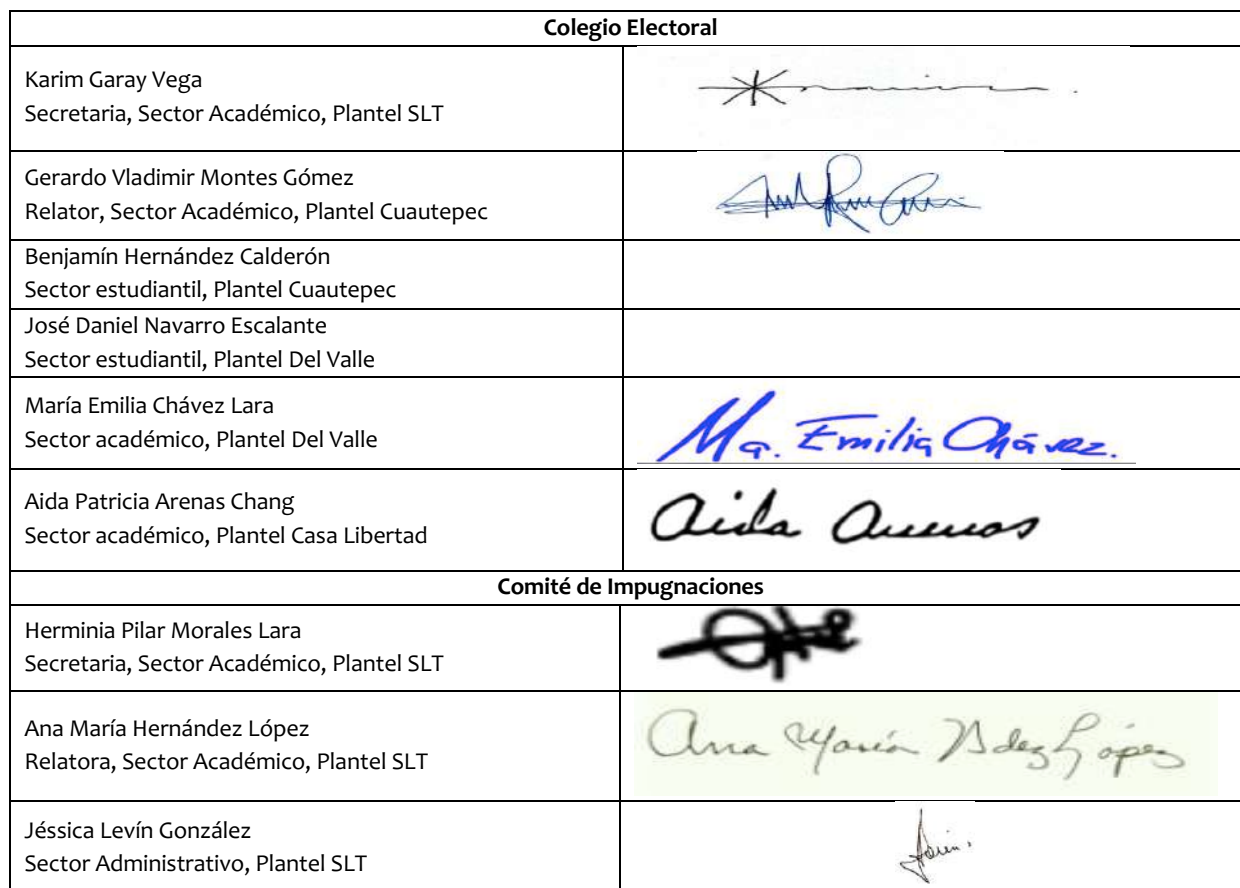 Colegio Electoral
Karim Garay Vega
Secretaria, Sector Académico, Plantel SLT
Gerardo Vladimir Montes Gómez
Relator, Sector Académico, Plantel Cuautepec
Benjamín Hernández Calderón
Sector estudiantil, Plantel Cuautepec
José Daniel Navarro Escalante
Sector estudiantil, Plantel Del Valle
María Emilia Chávez Lara
Sector académico, Plantel Del Valle
Ma. Emilia Chávez.
Aida Patricia Arenas Chang
Sector académico, Plantel Casa Libertad
Aida Arenas
Comité de Impugnaciones
Herminia Pilar Morales Lara
Secretaria, Sector Académico, Plantel SLT
Ana María Hernández López
Relatora, Sector Académico, Plantel SLT
Ana María Hdez López
Jéssica Levín González
Sector Administrativo, Plantel SLT